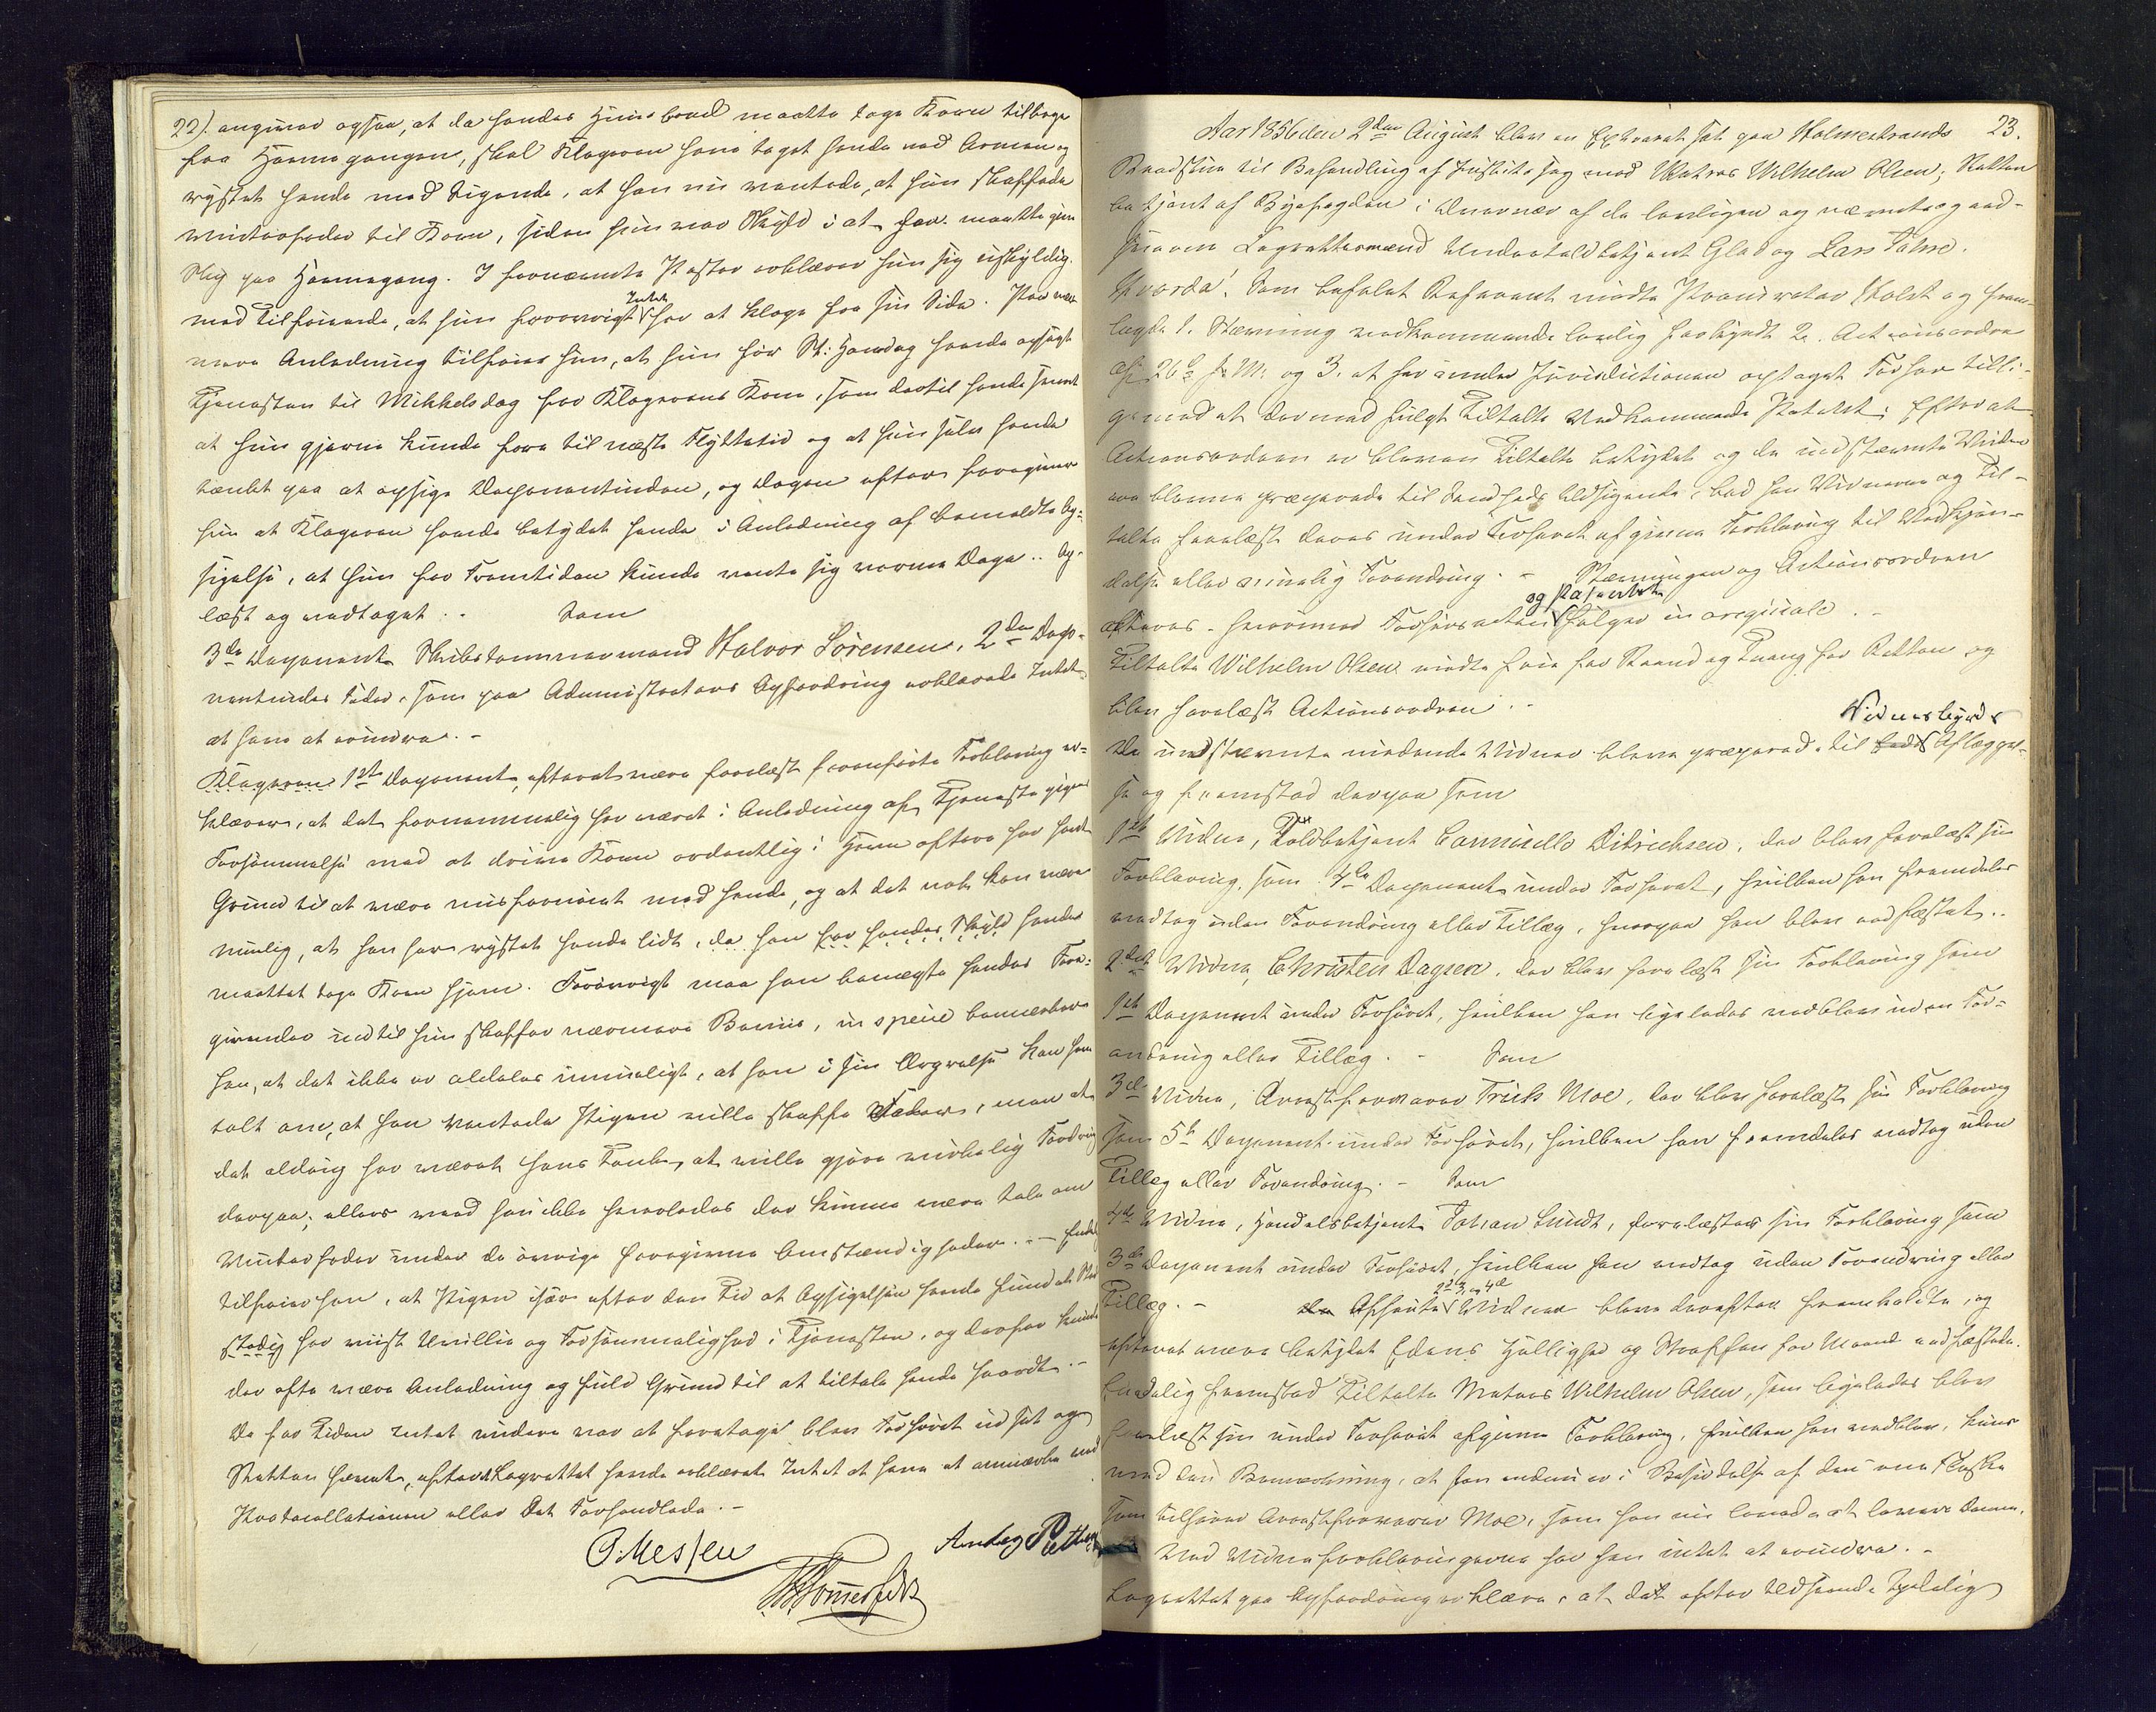 22). angiver ogsaa, at da hendes Huusbond maatte tage Koen tilbage
fra Havnegangen, skal Klageren have taget hende ved Armen og
rystet hende med Sigende, at han nu ventede, at hun skaffede
Vinterfoder til Koen, siden hun var Skyld i at han maatte give
Slip paa Havnegang. I fornævnte Poster erklærer hun sig uskyldig.
med Tilføiende, at hun forøvrigt Intet har at klage fra sin Side.
mere Anledning tilføier hun, at hun før St: Hansdag havde opsagt
Tjenesten til Mikkelsdag for Klagerens Kone, som dertil havde svaret
at hun gjerne kunde fare til næste Flyttetid og at hun selv havde
tænkt paa at opsige Deponentinden, og Dagen efter foregiver
hun at Klageren havde betydet hende i Anledning af bemeldte Op-
sigelse, at hun for Fremtiden kunde vente sig varme Dage. Op-
læst og vedtaget. Som
3de Deponent Skibstømmermand Halvor Sörensen, 2den Depo-
nentindes Fader, som paa Administrators Opfordring erklærede Intet
at have at erindre. -
Klageren 1ste Deponent, efterat være forelæst foranførte Forklaring er-
klærer, at det fornemmelig har været i Anledning af Tjenestepigens
Forsømmelse med at drive Koen ordentlig i Havn oftere har havt
Grund til at være misfornøiet med hende, og at det nok kan være
muelig, at han har rystet hende lidt, da han for hendes Skyld havde
maattet tage Koen hjem. Forøvrigt maa han benægte hendes Fore-
givender indtil hun skaffer nærmere Beviis, in specie bemærker
han, at det ikke er aldeles umueligt, at han i sin Ærgrelse kan have
talt om, at han ventede Pigen ville skaffe Foder, men at
det aldrig har været hans Tanke, at ville gjøre virkelig Fordring
derpaa; ellers veed han ikke hvorledes der kunne være Tale om
Vinterfoder under de øvrige foregivne Omstændigheder. - Endelig
tilføier han, at Pigen især efter den Tid at Opsigelsen havde fundet
Sted har viist Uvillie og Forsømmelighed i Tjenesten, og derfor kunde
der ofte være Anledning og fuld Grund til at tiltale hende haardt. -
Da for Tiden Intet videre var at foretage blev Forhøret udsat og
Retten hævet, efterat Lagrettet havde erklæret Intet at have at anmærke ved
Protocollationen eller det Forhandlede. -
O. Messen Anders Petters
Sommerfeldt
Aar 1856 den 2den August blev en Extraret sat paa Holmestrands 23.
Raadstue til Behandling af Justits-Sag mod Matros Wilhelm Olsen; Retten
betjent af Byefogden i Overvær af de lovligen og nævnte
svorne Lagrettesmænd Undertoldbetjent Glad og Lars
Hvorda: Som befalet Referent mødte Procurator Holst og frem-
lagde 1. Stævning vedkommende lovlig forkyndt 2. Actionsordre
af 26de f. M. og 3. et her under Jurisdictionen optaget Forhør tilli-
gemed et dermed fulgt Tiltalte vedkommende Pasattest. Efterat
Actionsordren er bleven Tiltalte betydet og de indstævnte Vidner
ere blevne præparerede til Sandheds Udsigende, bad han Vidnerne og Til-
talte forelæst deres under Forhøret afgivne Forklaring til Vedkjen-
delse eller muelig Forandring. - Stævningen og Actionsordren
acteres - hvorimod Forhørsacten og Pasattest følger in originale. -
Tiltalte Wilhelm Olsen mødte frie for Baand og Tvang for Retten og
blev forelæst Actionsordren. -
De indstævnte mødende Vidner bleve præpareret til Vidnesbyrds Aflæggel-
se og fremstod derpaa som
1ste Vidne, Toldbetjent Cammillo Ditrichsen, der blev forelæst sin
Forklaring som 4de Deponent under Forhøret, hvilken han fremdeles
vedtog uden Forandring eller Tillæg, hvorpaa han blev edfæstet.
2det Vidne, Christen Dagsen, der blev forelæst sin Forklaring som
1ste Deponent under Forhøret, hvilken han ligeledes vedblev uden For-
andring eller Tillæg. - Som
3de Vidne, Arrestforvarer Truls Moe, der blev forelæst sin Forklaring
som 5te Deponent under Forhøret, hvilken han fremdeles vedtog uden
Tillæg eller Forandring. - Som
4de Vidne, Handelsbetjent Johan Lundt, forelæstes sin Forklaring som
3de Deponent under Forhøret, hvilken han vedtog uden Forandring eller
Tillæg. - Afhørte 2d, 3 og 4de Vidner bleve derefter fremkaldte, og
efterat være betydet Edens Hellighed og Straffen for Meened edfæstede.
Endelig fremstod Tiltalte Matros Wilhelm Olsen, som ligeledes blev
forelæst sin under Forhøret afgivne Forklaring, hvilken han vedblev, kun
med den Bemærkning, at han endnu er i Besiddelse af den ene Flaske
som tilhører Arrestforvarer Moe, som han nu lovede at levere denne.
Ved Vidneforklaringerne har han intet at erindre. -
Lagrettet paa Opfordring erklære, at det efter Udseende tydelig